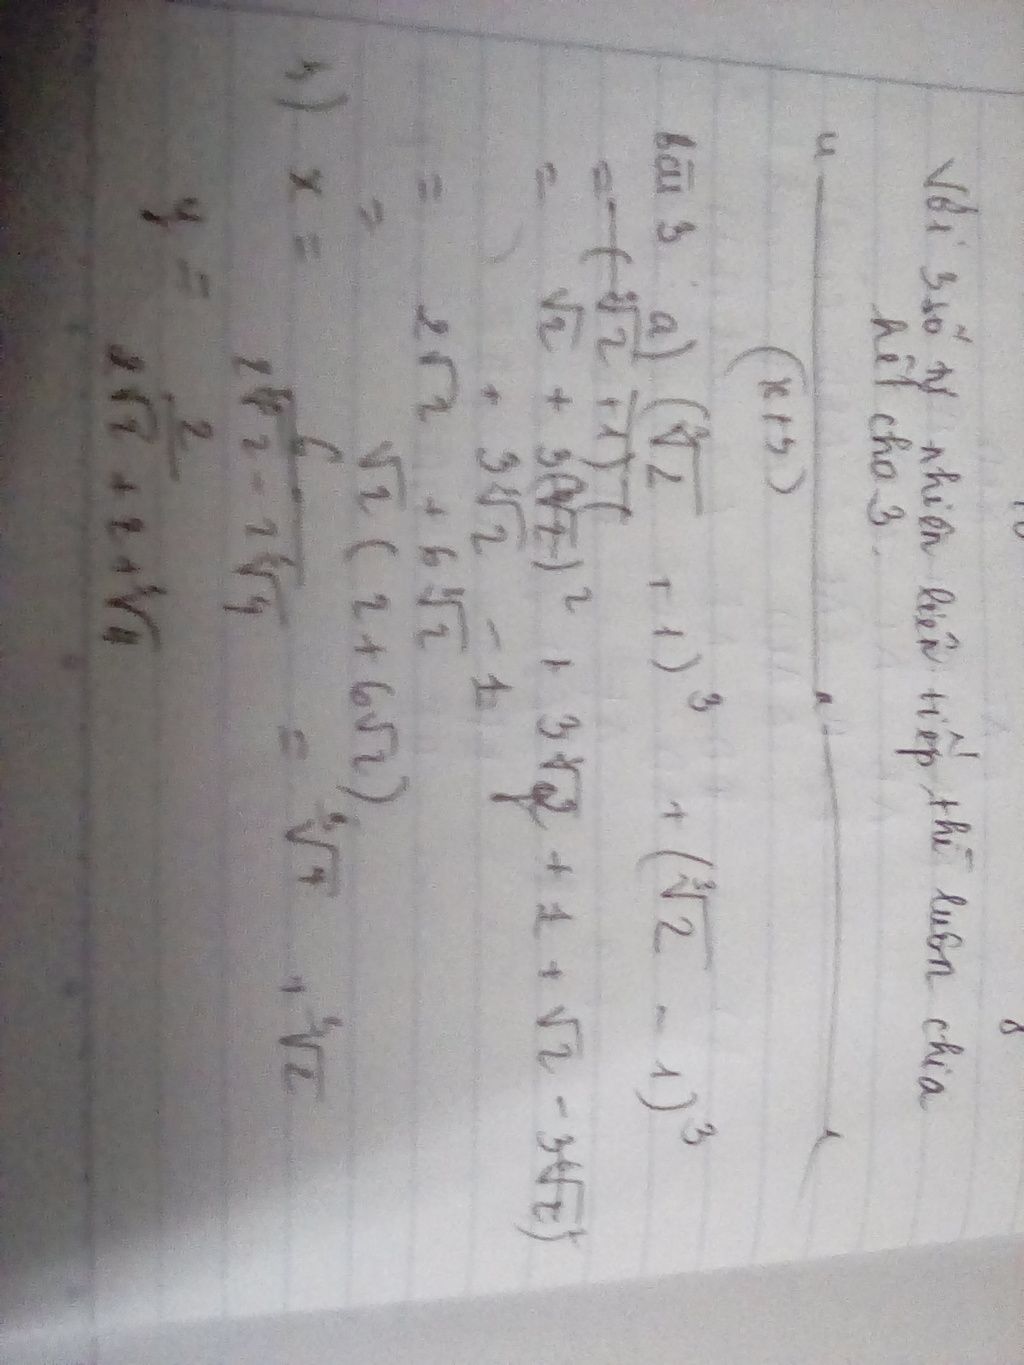 Với 3 số tự nhiên liên tiếp thì luôn chia
hết cho 3.
(x+3)
bài 3 a) (∛2 + 1)³ + (∛2 - 1)³
= (∛2 + 1)(
= √2 + 3(∛2)² + 3∛2 + 1 + √2 - 3(∛2)²
+ 3∛2 - 1
= 2√2 + 6∛2
= √2 (2 + 6√2)
b) x = 6 / (2∛2 - 2 + ∛4) = ∛4 + ∛2
y = 2 / (2∛2 + 2 + ∛4)